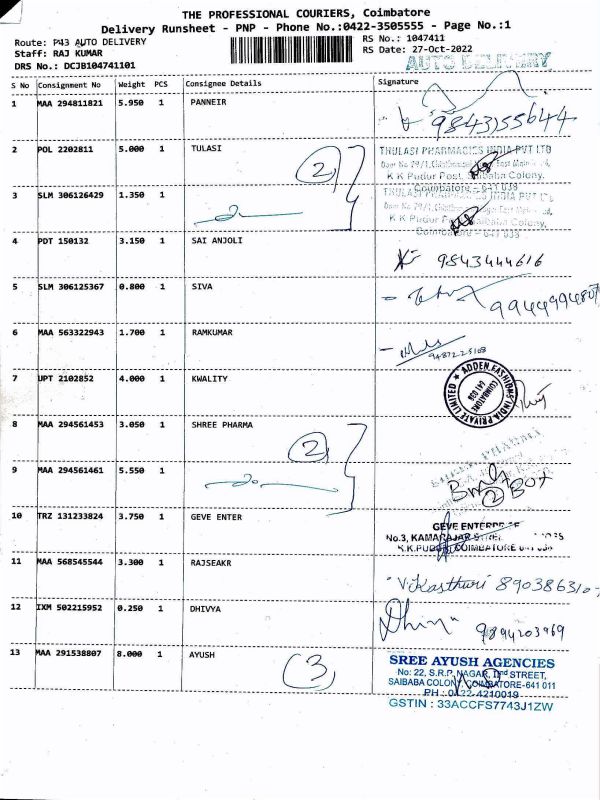 THE PROFESSIONAL COURIERS, Coimbatore
Delivery Runsheet - PNP - Phone No.:0422-3505555 - Page No.:1
Route: P43 AUTO DELIVERY
RS No.: 1047411
Staff: RAJ KUMAR
RS Date: 27-Oct-2022
DRS No.: DCJB104741101
AUTO DELIVERY
S No Consignment No Weight PCS Consignee Details Signature
1 MAA 294811821 5.950 1 PANNEIR 9843155644
2 POL 2202811 5.000 1 TULASI
THULASI PHARMACIES INDIA PVT LTD
K K Pudur Post, Saibaba Colony.
Coimbatore - 641 038
(2)
3 SLM 306126429 1.350 1
THULASI PHARMACIES INDIA PVT LTD
K K Pudur Post, Saibaba Colony.
Coimbatore - 641 038
4 PDT 150132 3.150 1 SAI ANJOLI 9843444616
5 SLM 306125367 0.800 1 SIVA
6 MAA 563322943 1.700 1 RAMKUMAR
7 UPT 2102852 4.000 1 KWALITY
ADDEN FASHIONS INDIA PRIVATE LIMITED
COIMBATORE
641 038
8 MAA 294561453 3.050 1 SHREE PHARMA
(2)
SHREE PHARMA
9 MAA 294561461 5.550 1
(2) Box
10 TRZ 131233824 3.750 1 GEVE ENTER
GEVE ENTERPRISE
No.3, KAMARAJAR
K.K.PUDUR, COIMBATORE 641 038
11 MAA 568545544 3.300 1 RAJSEAKR
Vikasthuri
12 IXM 502215952 0.250 1 DHIVYA
9894203969
13 MAA 291538807 8.000 1 AYUSH
(3)
SREE AYUSH AGENCIES
No: 22, S.R.P. NAGAR, IInd STREET,
SAIBABA COLONY, COIMBATORE-641 011
PH : 0422-4210019
GSTIN : 33ACCFS7743J1ZW